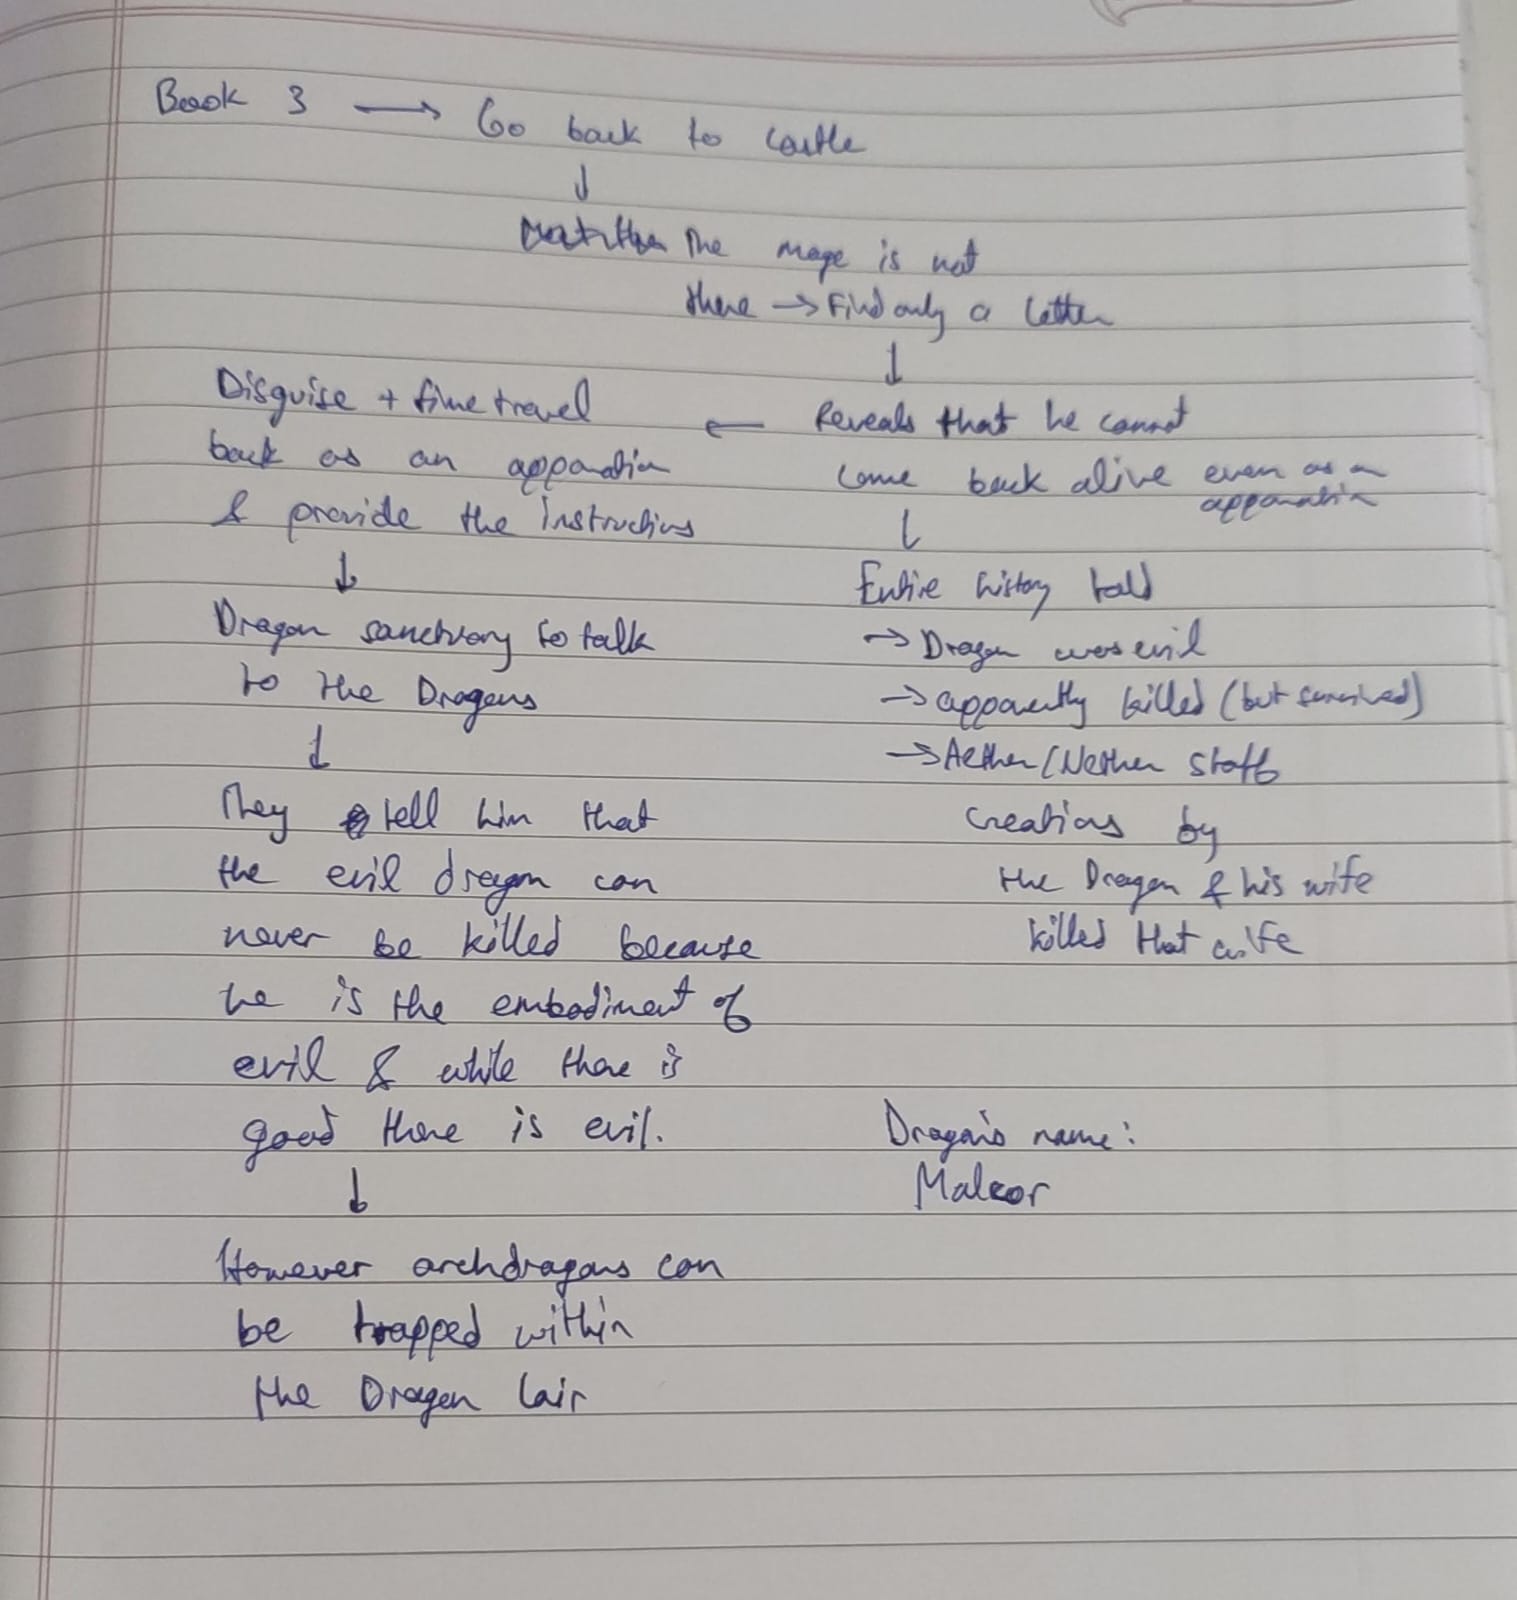 Book 3 → Go back to castle
↓
The mage is not
there → Find only a letter
↓
Reveals that he cannot
come back alive even as an
apparation
↓
Entire history told
→ Dragon was evil
→ apparently killed (but survived)
→ Aether/Nether staff
creations by
the Dragon & his wife
killed that wife
←
Disguise + time travel
back as an apparation
& provide the instructions
↓
Dragon sanctuary to talk
to the Dragons
↓
They tell him that
the evil dragon can
never be killed because
he is the embodiment of
evil & while there is
good there is evil.
↓
However archdragons can
be trapped within
the Dragon lair
Dragon's name:
Malcor